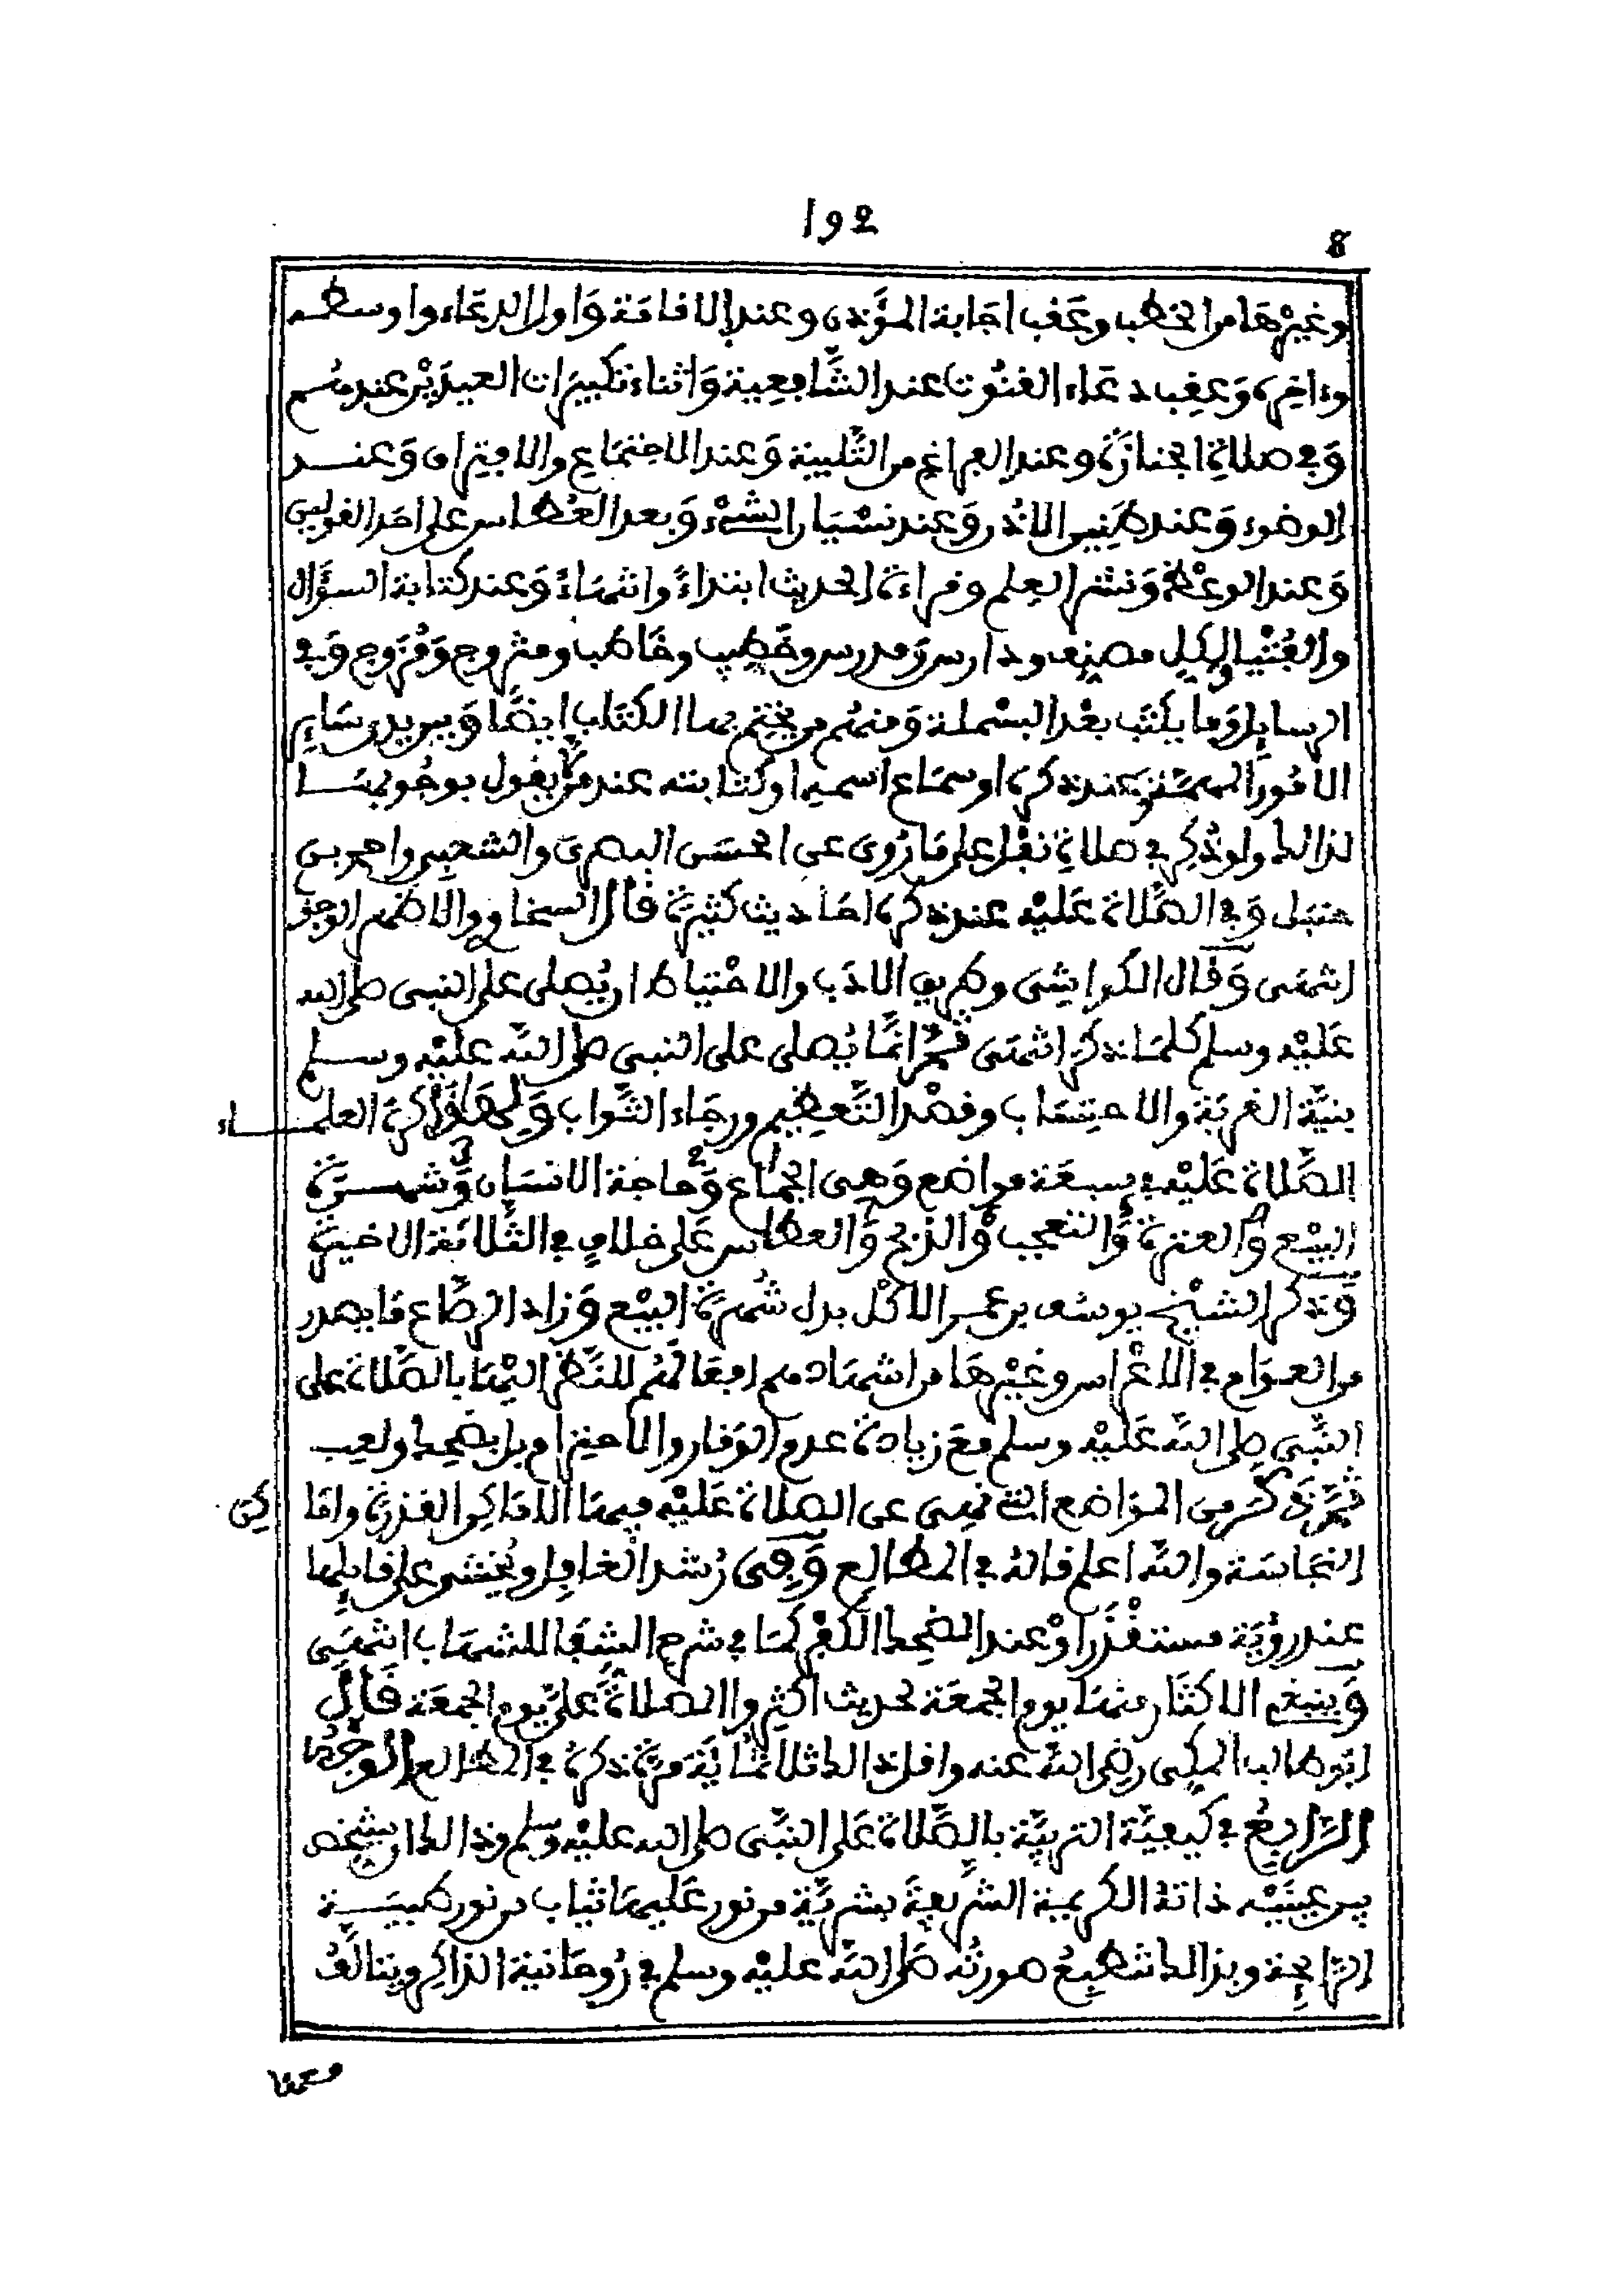 192
8
وغيرها من الخطب وعقب اجابة المؤذن وعند الاقامة واول الدعاء واوسطه
وءاخره وعقب دعاء القنوت عند الشافعية واثناء تكبيرات العيدين عندهم
وفي صلاة الجنازة وعند الفراغ من التلبية وعند الاجتماع والافتراق وعند
الوضوء وعند طنين الاذن وعند نسيان الشيء وبعد العطاس على احد القولين
وعند الوعظ ونشر العلم وقراءة الحديث ابتداءً وانتهاءً وعند كتابة السؤال
والفتيا ولكل مصنف ودارس ومدرس وخطيب وخاطب ومتزوج ومزوج وفي
الرسايل وما يكتب بعد البسملة ومنهم من يختم بها الكتاب ايضا وبين يدي ساير
الامور المهمة وعند ذكره او سماع اسمه او كتابته عند من لا يقول بوجوبها
لذالك ولو ذكر في صلاة نفل على ما روي عن الحسن البصري والشعبي واحمد بن
حنبل وفي الصلاة عليه عند ذكره احاديث كثيرة قال السخاوي والاظهر الوجوب
انتهى وقال الكواشى وطريق الادب والاحتياط ان يصلى على النبى صلى الله
عليه وسلم كلما ذكر انتهى ثم انما يصلى على النبى صلى الله عليه وسلم
بنية القربة والاحتساب وقصد التعظيم ورجاء الثواب ولهذا كره العلماء
الصلاة عليه في سبعة مواضع وهى الجماع وحاجة الانسان وشهرة
البيع والعثرة والتعجب والذبح والعطاس على خلاف في الثلاثة الاخيرة
وذكر الشيخ يوسف بن عمر الاكل بدل شهرة البيع وزاد الرصاع ما يصدر
من العوام في الاعراس وغيرها من اشهادهم افعالهم للنظر اليها بالصلاة على
النبى صلى الله عليه وسلم مع زيادة عدم الوقار والاحترام بل بضحك ولعب
ثم ذكر من المواضع التي نهى عن الصلاة عليه فيها الاماكن القذرة واماكن
النجاسة والله اعلم قاله في المطالع وفى رشد الغافل ويخشى على قايلها
عند رؤية مستقذر او عند الضحك الكفر كما في شرح الشفا للشهاب انتهى
وينبغي الاكثار منها يوم الجمعة لحديث اكثروا الصلاة علي يوم الجمعة قال
ابو طالب المكى رضي الله عنه واقل ذالك ثلاثماية مرة ذكره في المطالع الوجه
الرابع في كيفية التربية بالصلاة على النبى صلى الله عليه وسلم وذالك ان يشخص
بين عينيه ذاته الكريمة الشريفة بشرية من نور عليها ثياب من نور طيبة
الرائحة وبذالك تنطبع صورته صلى الله عليه وسلم في روحانية الذاكر ويتالف